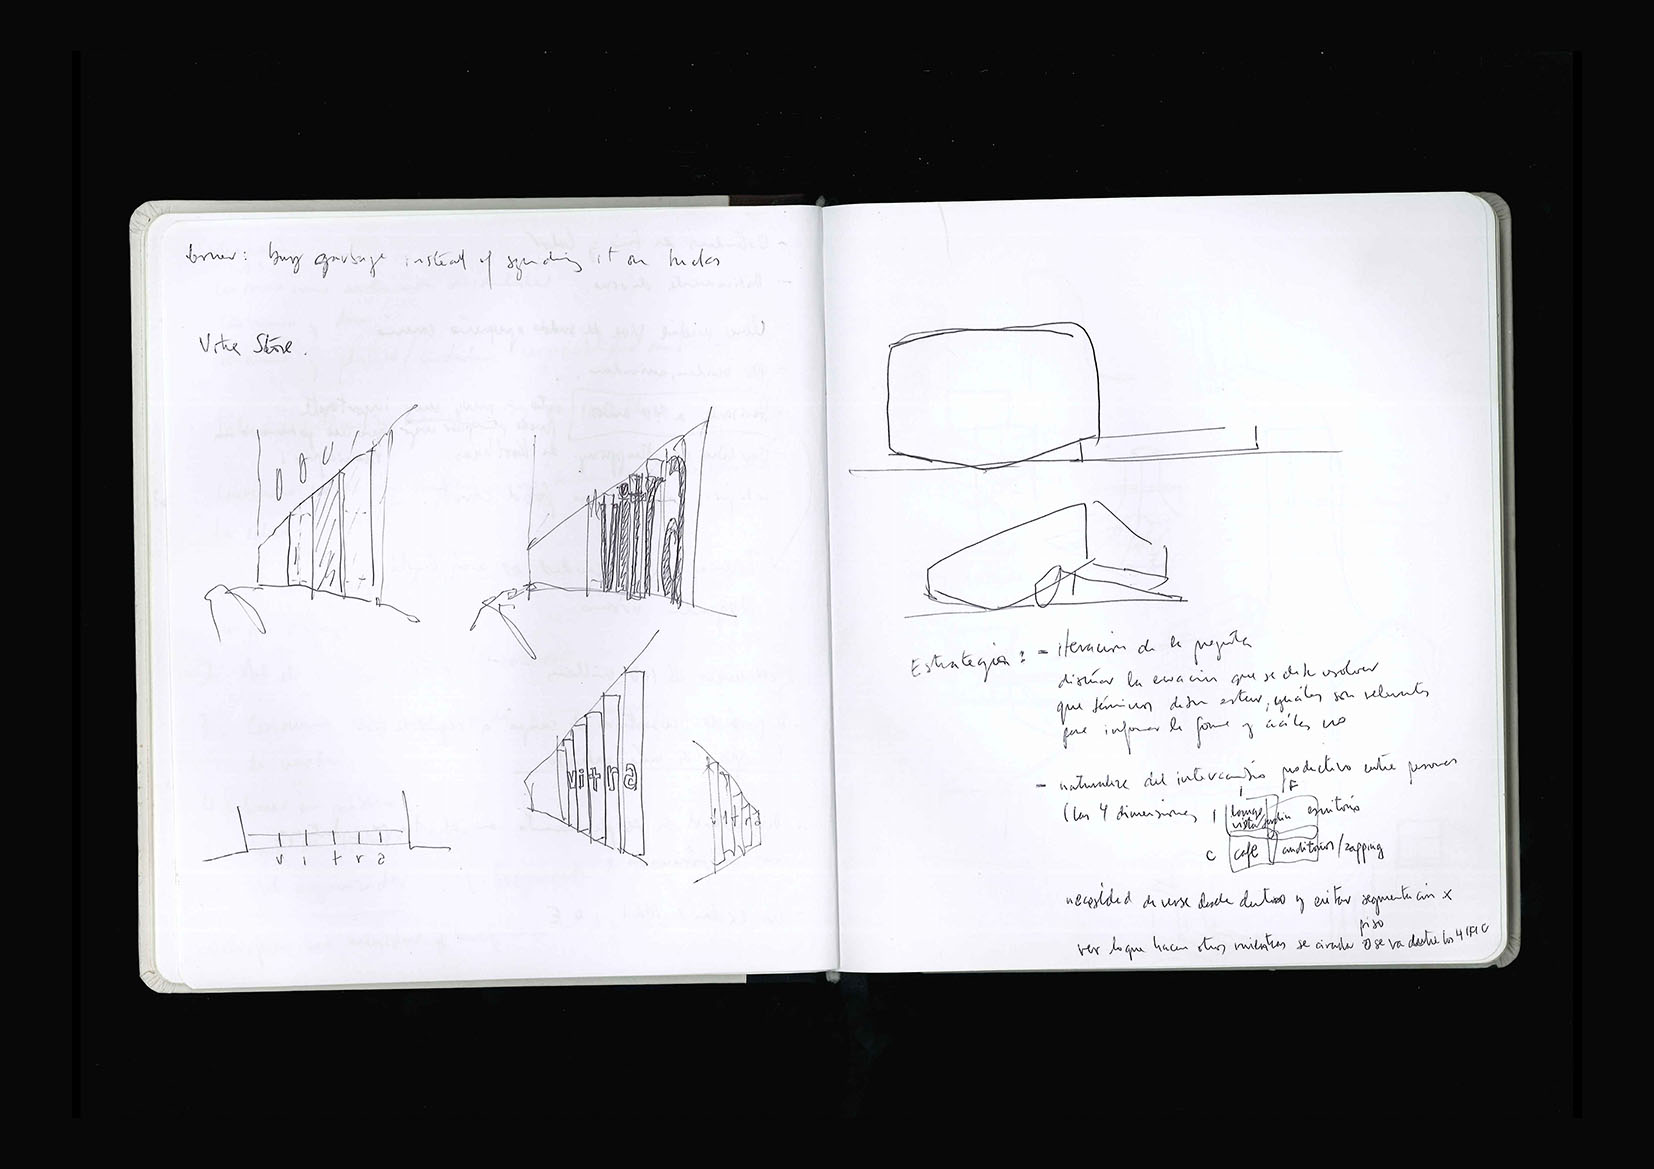 buy garbage instead of spending it on trucks
Vitra Store.
vitra
vitra
v i t r a
vitra
Estrategia: - iteración de la pregunta
diseñar la ecuación que se debe resolver
que términos deben estar, cuáles son relevantes
para informar la forma y cuáles no
- naturaleza del intercambio productivo entre personas
(las 4 dimensiones
I F
I lounge vista jardín escritorio
C café auditorios/zapping
necesidad de verse desde dentro y evitar segmentación x
piso
ver lo que hacen otros mientras se circula o se va de entre los 4 IFIC